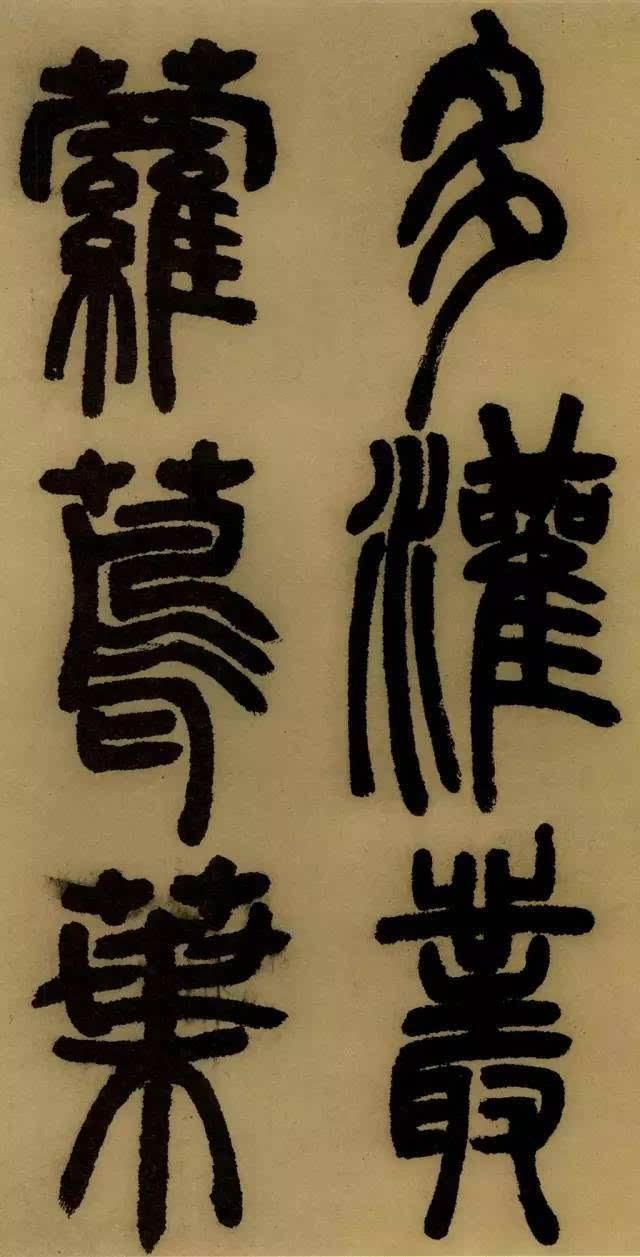 多灌叢
蘿蔦葉